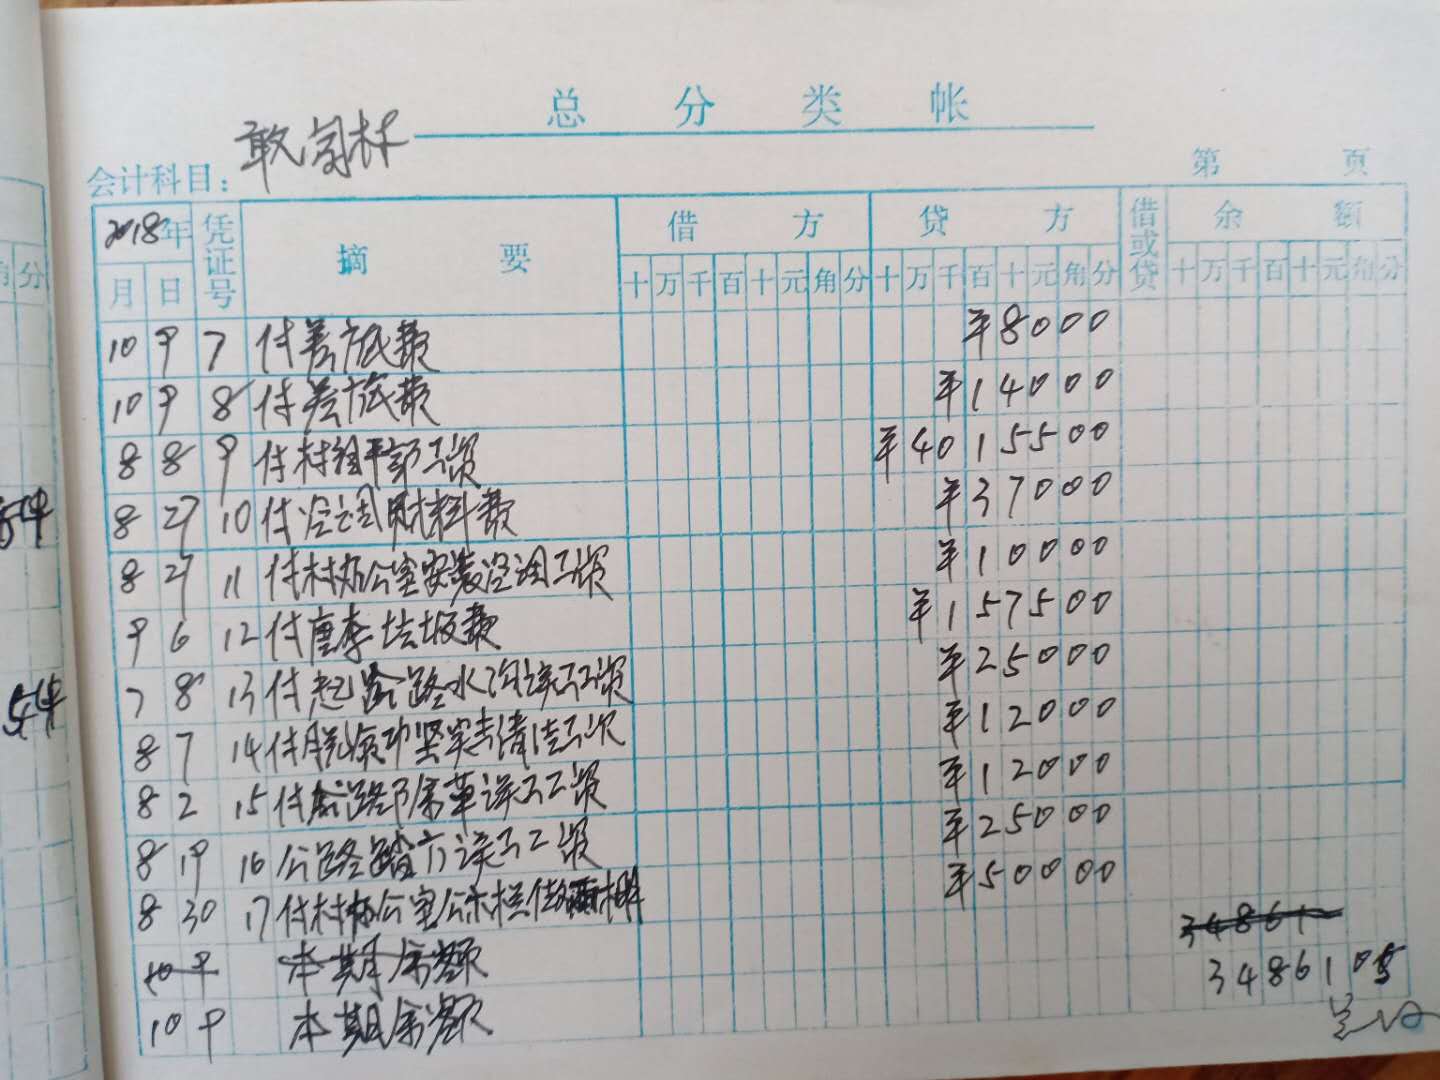 总分类帐
会计科目:
第 页
2018年 凭证号 摘要 借方 贷方 借或贷 余额
月 日 十万千百十元角分 十万千百十元角分 十万千百十元角分
10 9 7 付 费 ¥8000
10 9 8 付 费 ¥14000
8 8 9 付村组干部工资 ¥4015500
8 27 10 付冷调材料费 ¥37000
8 27 11 付村办公室安装冷调工资 ¥10000
9 6 12 付唐李垃圾费 ¥157500
7 8 13 付 公路水沟误工工资 ¥25000
8 7 14 付脱贫功坚 清洁工资 ¥12000
8 2 15 付公路 除草误工工资 ¥12000
8 19 16 公路踏方误工工资 ¥25000
8 30 17 付村办公室公示栏做雨棚 ¥50000
10 9 本期余额 34861
10 9 本期余额 3486105